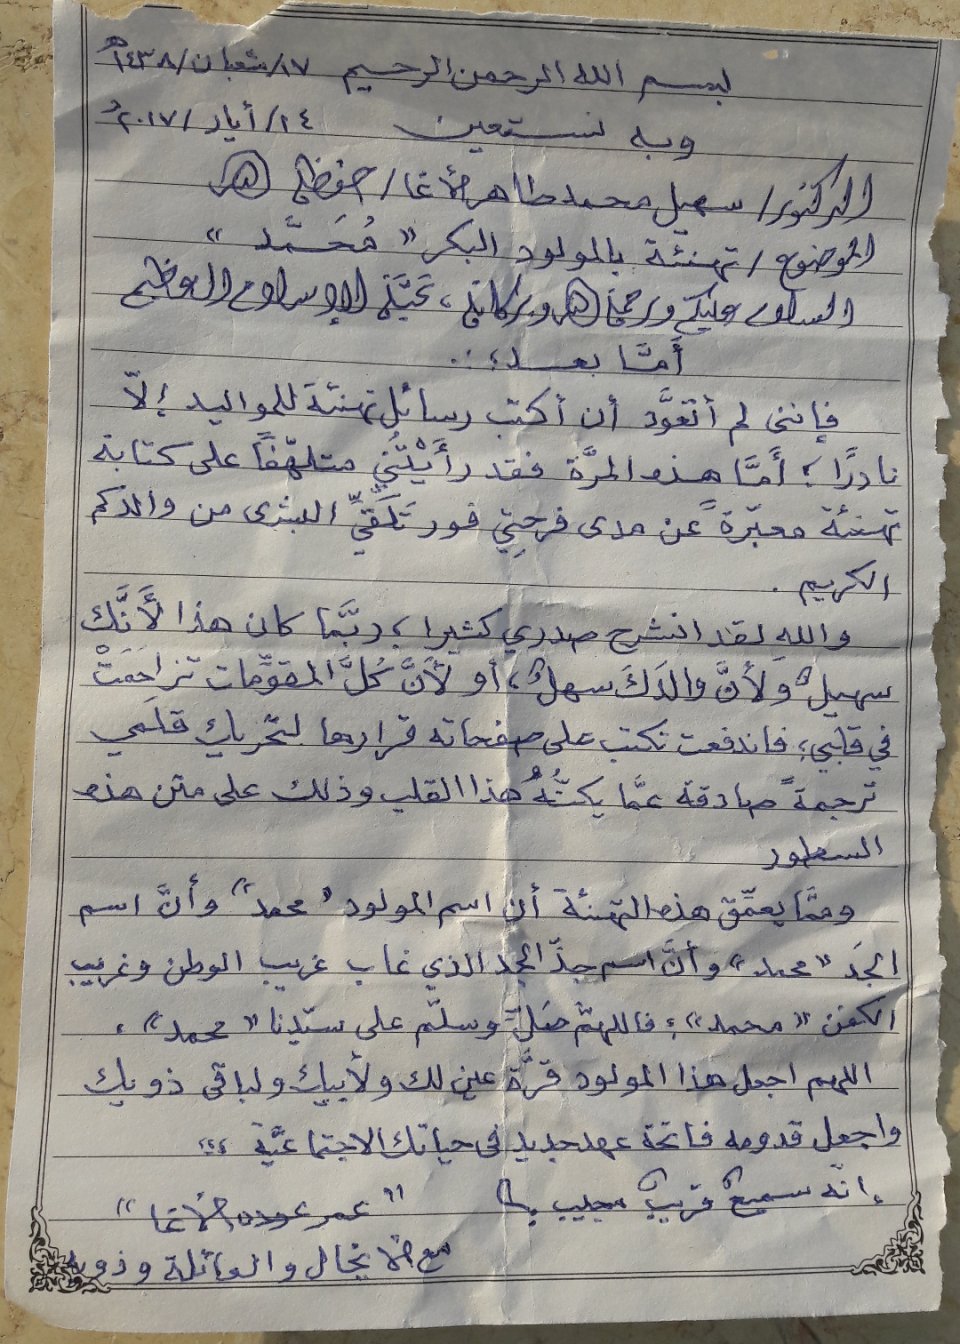 بسم الله الرحمن الرحيم ١٧/شعبان/١٤٣٨هـ
وبه نستعين ١٤/أيار/٢٠١٧م
الدكتور/ سهيل محمد طاهر الأغا/ حفظه الله
الموضوع/ تهنئة بالمولود البكر "مُحَمَّد"
السلام عليكم ورحمة الله وبركاته، تحيَّة الإسلام العظيم
أمَّا بعــد؛..
فإنني لم أتعوَّد أن أكتب رسائل تهنئة للمواليد إلّا
نادرًا؛ أمَّا هذه المرَّة فقد رأَيْتُني متلهّفًا على كتابة
تهنئة معبّرة عن مدى فرحتِي فور تَلَقِّيَّ البشرى من والدكم
الكريم.
والله لقد انشرح صدري كثيرا، ربَّما كان هذا لأَنَّك
سهيلٌ ولأنَّ والدَكَ سهلٌ، أو لأَنَّ كلَّ المقوّمات تزاحَمَتْ
في قلبي؛ فاندفعت تكتب على صفحاته قرارها لتحريك قلَمي
ترجمةً صادقة عمَّا يكنُّهُ هذا القلب وذلك على متن هذه
السطور
وممَّا يعمّق هذه التهنئة أن اسم المولود "محمد" وأنَّ اسم
الجَد "محمد" وأنَّ اسم جدّ الجد الذي غاب غريب الوطن وغريب
الكفن "محمد"؛ فاللهمَّ صَلِّ وسلّم على سيّدنا "محمد"،
اللهم اجعل هذا المولود قرَّة عين لك ولأبيك ولباقي ذويك
واجعل قدومه فاتحة عهد جديد في حياتك الاجتماعيَّة ؛؛
إنّه سميعٌ قريبٌ مجيب "عمر عوده الأغا"
مع الأنجال والعائلة وذويه